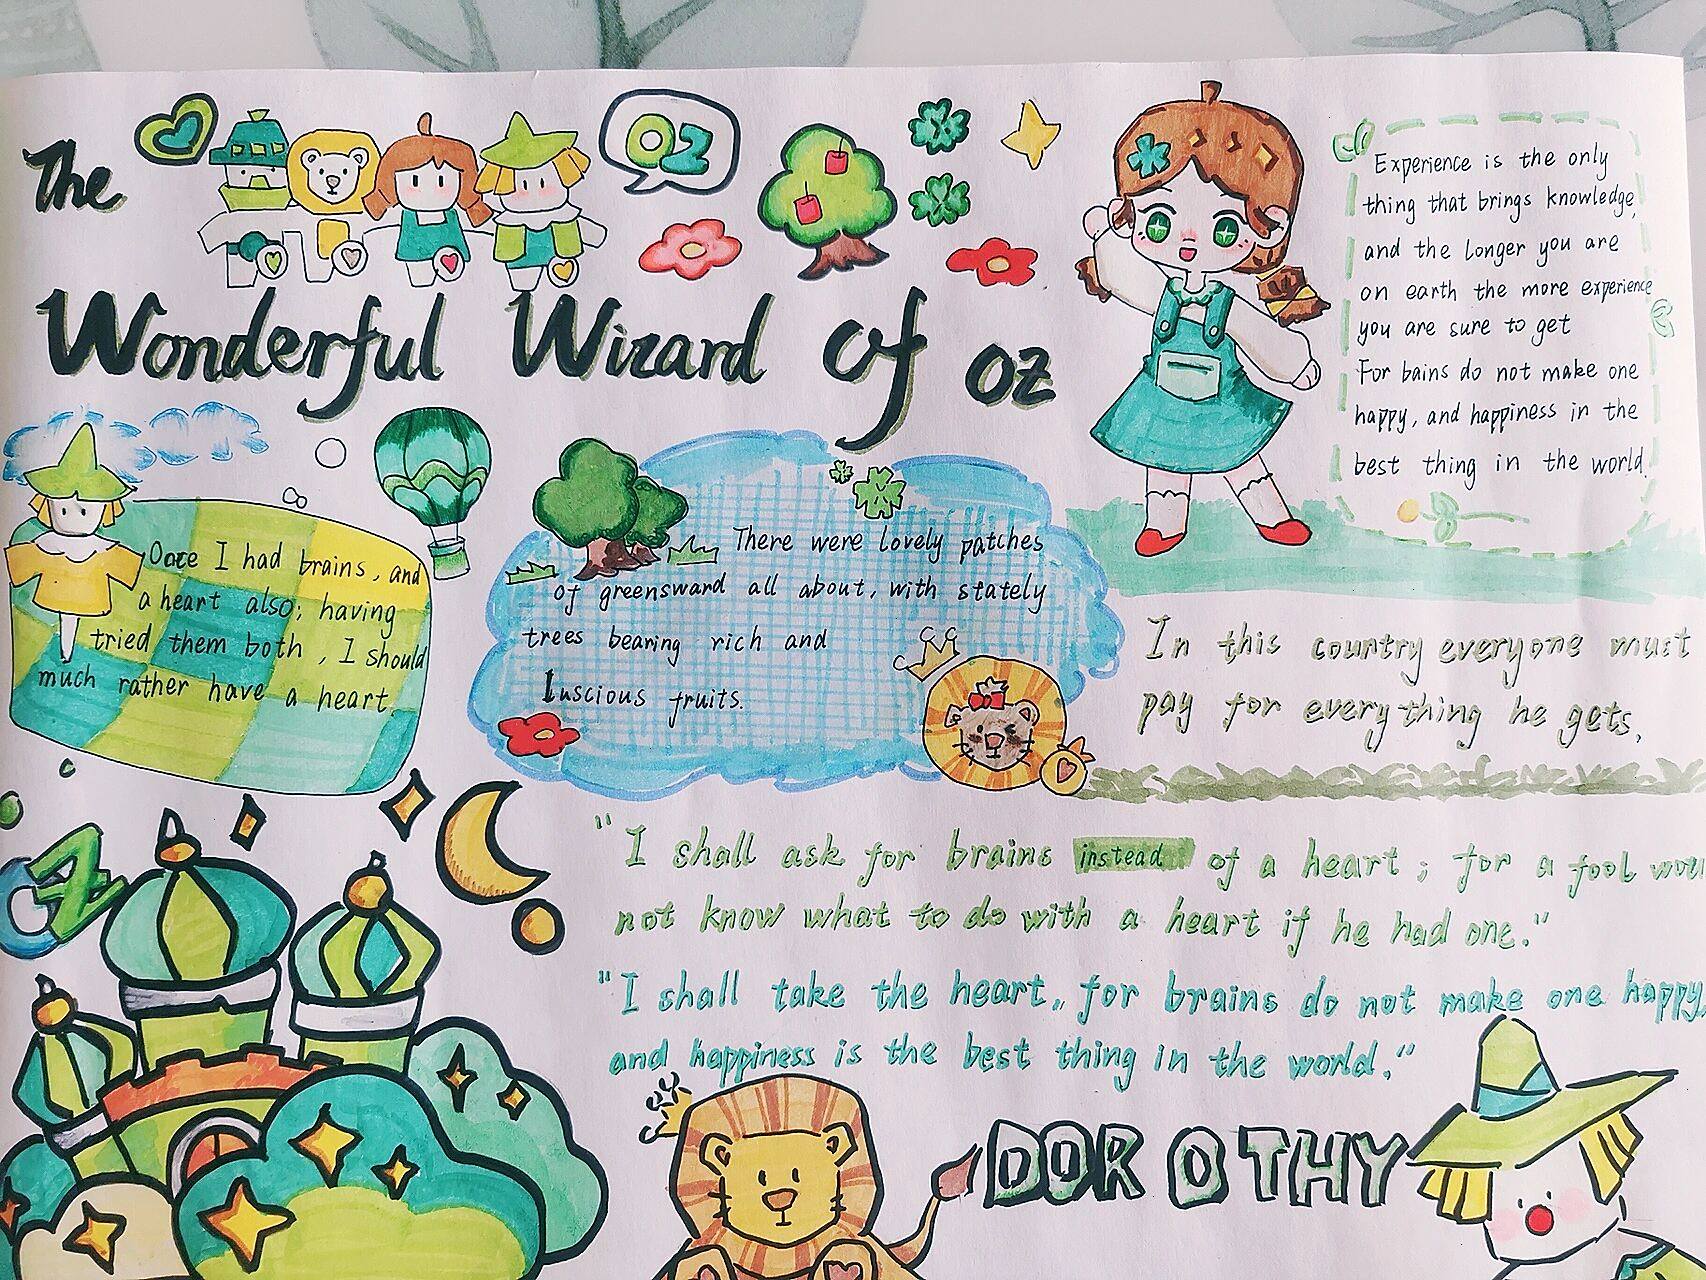 The
OZ
Wonderful Wizard Of Oz
Experience is the only
thing that brings knowledge,
and the longer you are
on earth the more experience
you are sure to get
For bains do not make one
happy, and happiness in the
best thing in the world.
Once I had brains, and
a heart also; having
tried them both, I should
much rather have a heart.
There were lovely patches
of greensward all about, with stately
trees bearing rich and
Luscious fruits.
In this country everyone must
pay for everything he gets.
OZ
"I shall ask for brains instead of a heart; for a fool
not know what to do with a heart if he had one."
"I shall take the heart, for brains do not make one happy,
and happiness is the best thing in the world."
DOROTHY